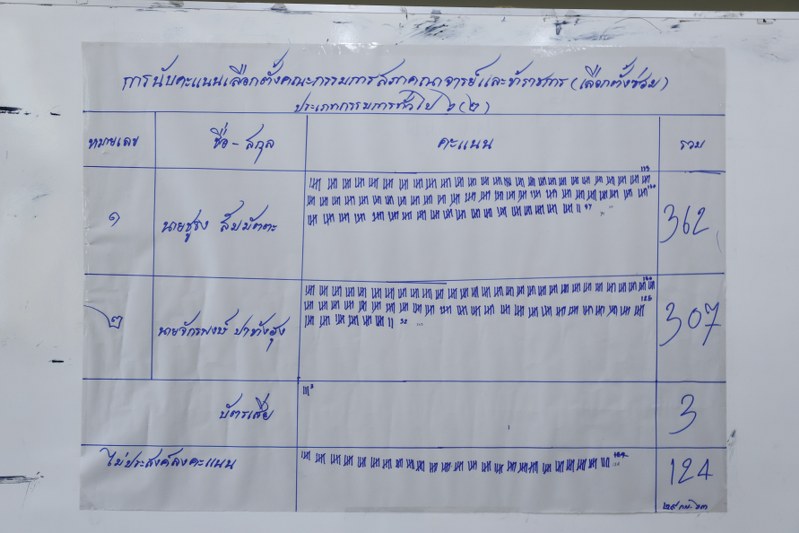 การนับคะแนนเลือกตั้งคณะกรรมการสภาคณาจารย์และข้าราชการ (เลือกตั้งซ่อม)
ประเภทกรรมการทั่วไป ๖(๒)
หมายเลข ชื่อ - สกุล คะแนน รวม
๑ นายชูธง 362
๒ นายจักรพงษ์ 307
บัตรเสีย 3 3
ไม่ประสงค์ลงคะแนน 124 124